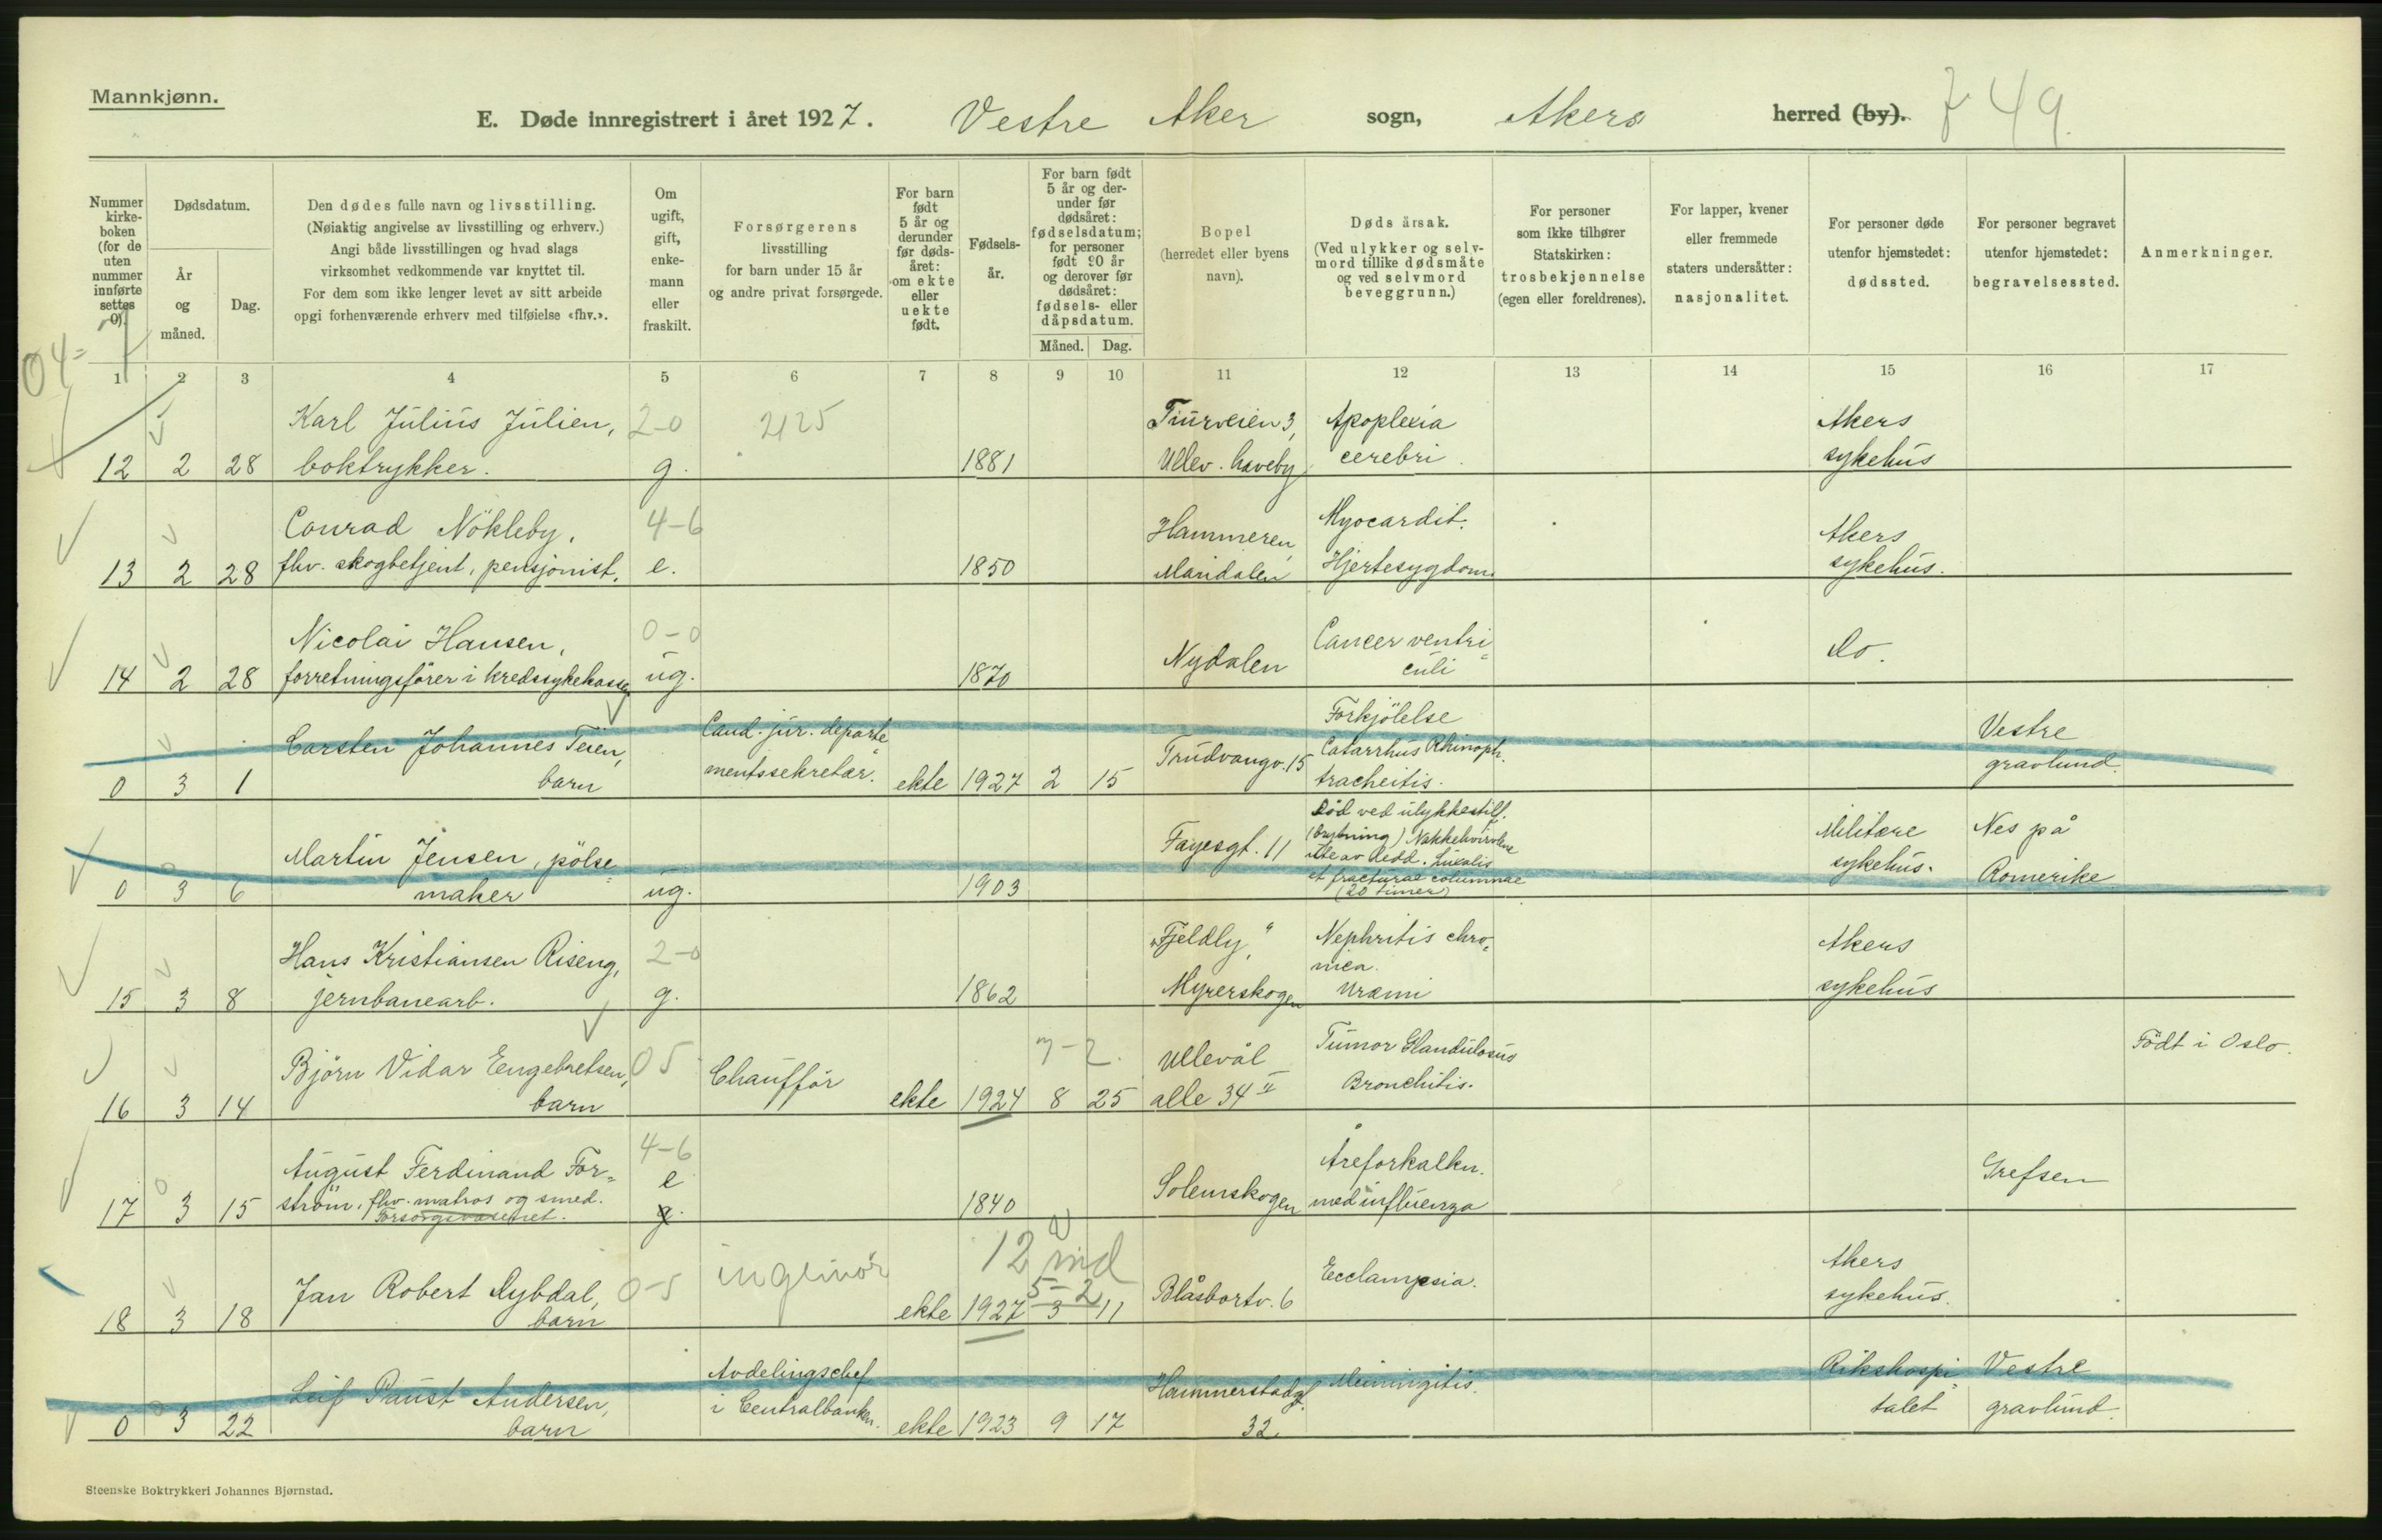 Mannkjønn.
E. Døde innregistrert i året 1927. Vestre Aker sogn, Akers herred (by). 49.
Nummer kirkeboken (for de uten nummer innførte settes 0).
Dødsdatum.
År og måned.
Dag.
Den dødes fulle navn og livsstilling.
(Nøiaktig angivelse av livsstilling og erhverv.)
Angi både livsstillingen og hvad slags
virksomhet vedkommende var knyttet til.
For dem som ikke lenger levet av sitt arbeide
opgi forhenværende erhverv med tilføielse «fhv.».
Om ugift, gift, enkemann eller fraskilt.
Forsørgerens
livsstilling
for barn under 15 år
og andre privat forsørgede.
For barn født 5 år og derunder før dødsåret: om ekte eller uekte født.
Fødselsår.
For barn født 5 år og derunder før dødsåret: fødselsdatum; for personer født 90 år og derover før dødsåret: fødsels- eller dåpsdatum.
Måned.
Dag.
Bopel
(herredet eller byens
navn).
Døds årsak.
(Ved ulykker og selvmord tillike dødsmåte og ved selvmord beveggrunn.)
For personer
som ikke tilhører
Statskirken:
trosbekjennelse
(egen eller foreldrenes).
For lapper, kvener
eller fremmede
staters undersåtter:
nasjonalitet.
For personer døde
utenfor hjemstedet:
dødssted.
For personer begravet
utenfor hjemstedet:
begravelsessted.
Anmerkninger.
04=
1 2 3 4 5 6 7 8 9 10 11 12 13 14 15 16 17
Karl Julius Julien, 2-0 2125 Tiurveien 3, Apoplexia Akers
12 2 28 boktrykker. g. 1881 Ullev. haveby cerebri. sykehus
Conrad Nökleby, 4-6 Hammeren, Myocardit. Akers
13 2 28 fhv. skogbetjent, pensjonist, e. 1850 Maridalen Hjertesygdom. sykehus.
Nicolai Hansen, 0-0 Cancer ventri=
14 2 28 forretningsförer i kredssykekasse ug. 1870 Nydalen culi do.
Carsten Johannes Teien, Cand. jur. departe= Trudvangv. 15 Forkjölelse Vestre
Catarrhus Rhinoph.
0 3 1 barn mentssekretær. ekte 1927 2 15 tracheitis. gravlund.
Martin Jensen, pölse= Fayesgt. 11 Död ved ulykkestilf. Militære Nes på
(brytning) Nakkehvirvlene
0 3 6 maker ug. 1903 et fracturae columnae sykehus. Romerike
(20 timer)
Hans Kristiansen Riseng, 2-0 "Fjeldly," Nephritis chro= Akers
nica.
15 3 8 jernbanearb. g. 1862 Myrerskogen Uræmi sykehus
Björn Vidar Engebretsen, 05 Chaufför 7-2. Ullevål Tumor Glandulosus Födt i Oslo.
16 3 14 barn ekte 1924 8 25 alle 34 II Bronchitis.
August Ferdinand For= 4-6 e Åreforkalkn. Grefsen
17 3 15 ström, fhv. matros og smed. g. 1840 Solemskogen med influenza
Forsorgsvæsenet.
Jan Robert Dybdal, 0-5 ingeniör 12 md 5-2 Blåsbortv. 6 Ecclampsia. Akers
18 3 18 barn ekte 1927 3 11 sykehus.
Leif Paust Andersen, Avdelingschef Hammerstadgt. Meningitis. Rikshospi= Vestre
i Centralbanken.
0 3 22 barn ekte 1923 9 17 32. talet gravlund.
Steenske Boktrykkeri Johannes Bjørnstad.